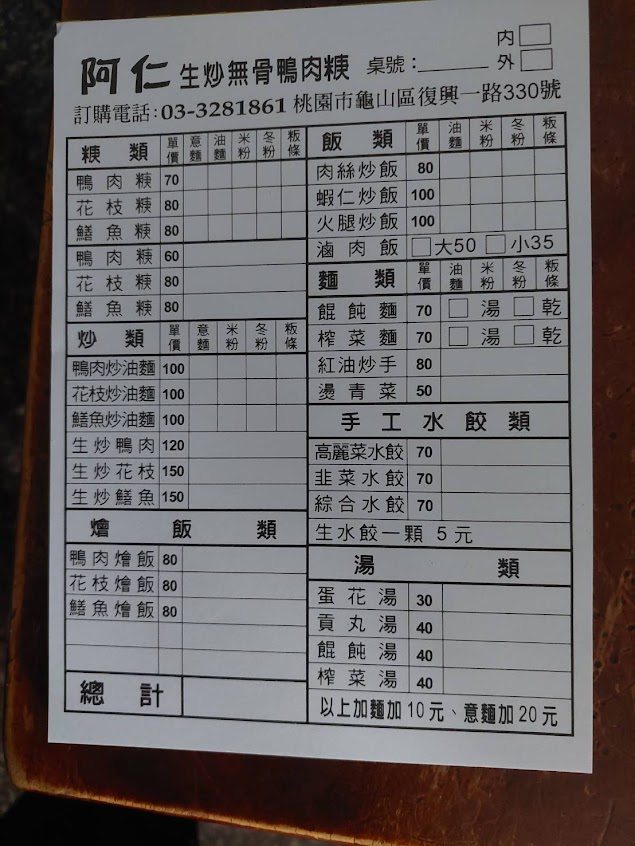 內□
阿仁 生炒無骨鴨肉粳 桌號：______ 外□
訂購電話：03-3281861 桃園市龜山區復興一路330號
粳類 單價 意麵 油麵 米粉 冬粉 粄條
鴨肉粳 70
花枝粳 80
鱔魚粳 80
鴨肉粳 60
花枝粳 80
鱔魚粳 80
炒類 單價 意麵 米粉 冬粉 粄條
鴨肉炒油麵 100
花枝炒油麵 100
鱔魚炒油麵 100
生炒鴨肉 120
生炒花枝 150
生炒鱔魚 150
燴飯類
鴨肉燴飯 80
花枝燴飯 80
鱔魚燴飯 80
總計
飯類 單價 油麵 米粉 冬粉 粄條
肉絲炒飯 80
蝦仁炒飯 100
火腿炒飯 100
滷肉飯 □大50 □小35
麵類 單價 油麵 米粉 冬粉 粄條
餛飩麵 70 □湯 □乾
榨菜麵 70 □湯 □乾
紅油炒手 80
燙青菜 50
手工水餃類
高麗菜水餃 70
韭菜水餃 70
綜合水餃 70
生水餃一顆 5元
湯類
蛋花湯 30
貢丸湯 40
餛飩湯 40
榨菜湯 40
以上加麵加10元、意麵加20元